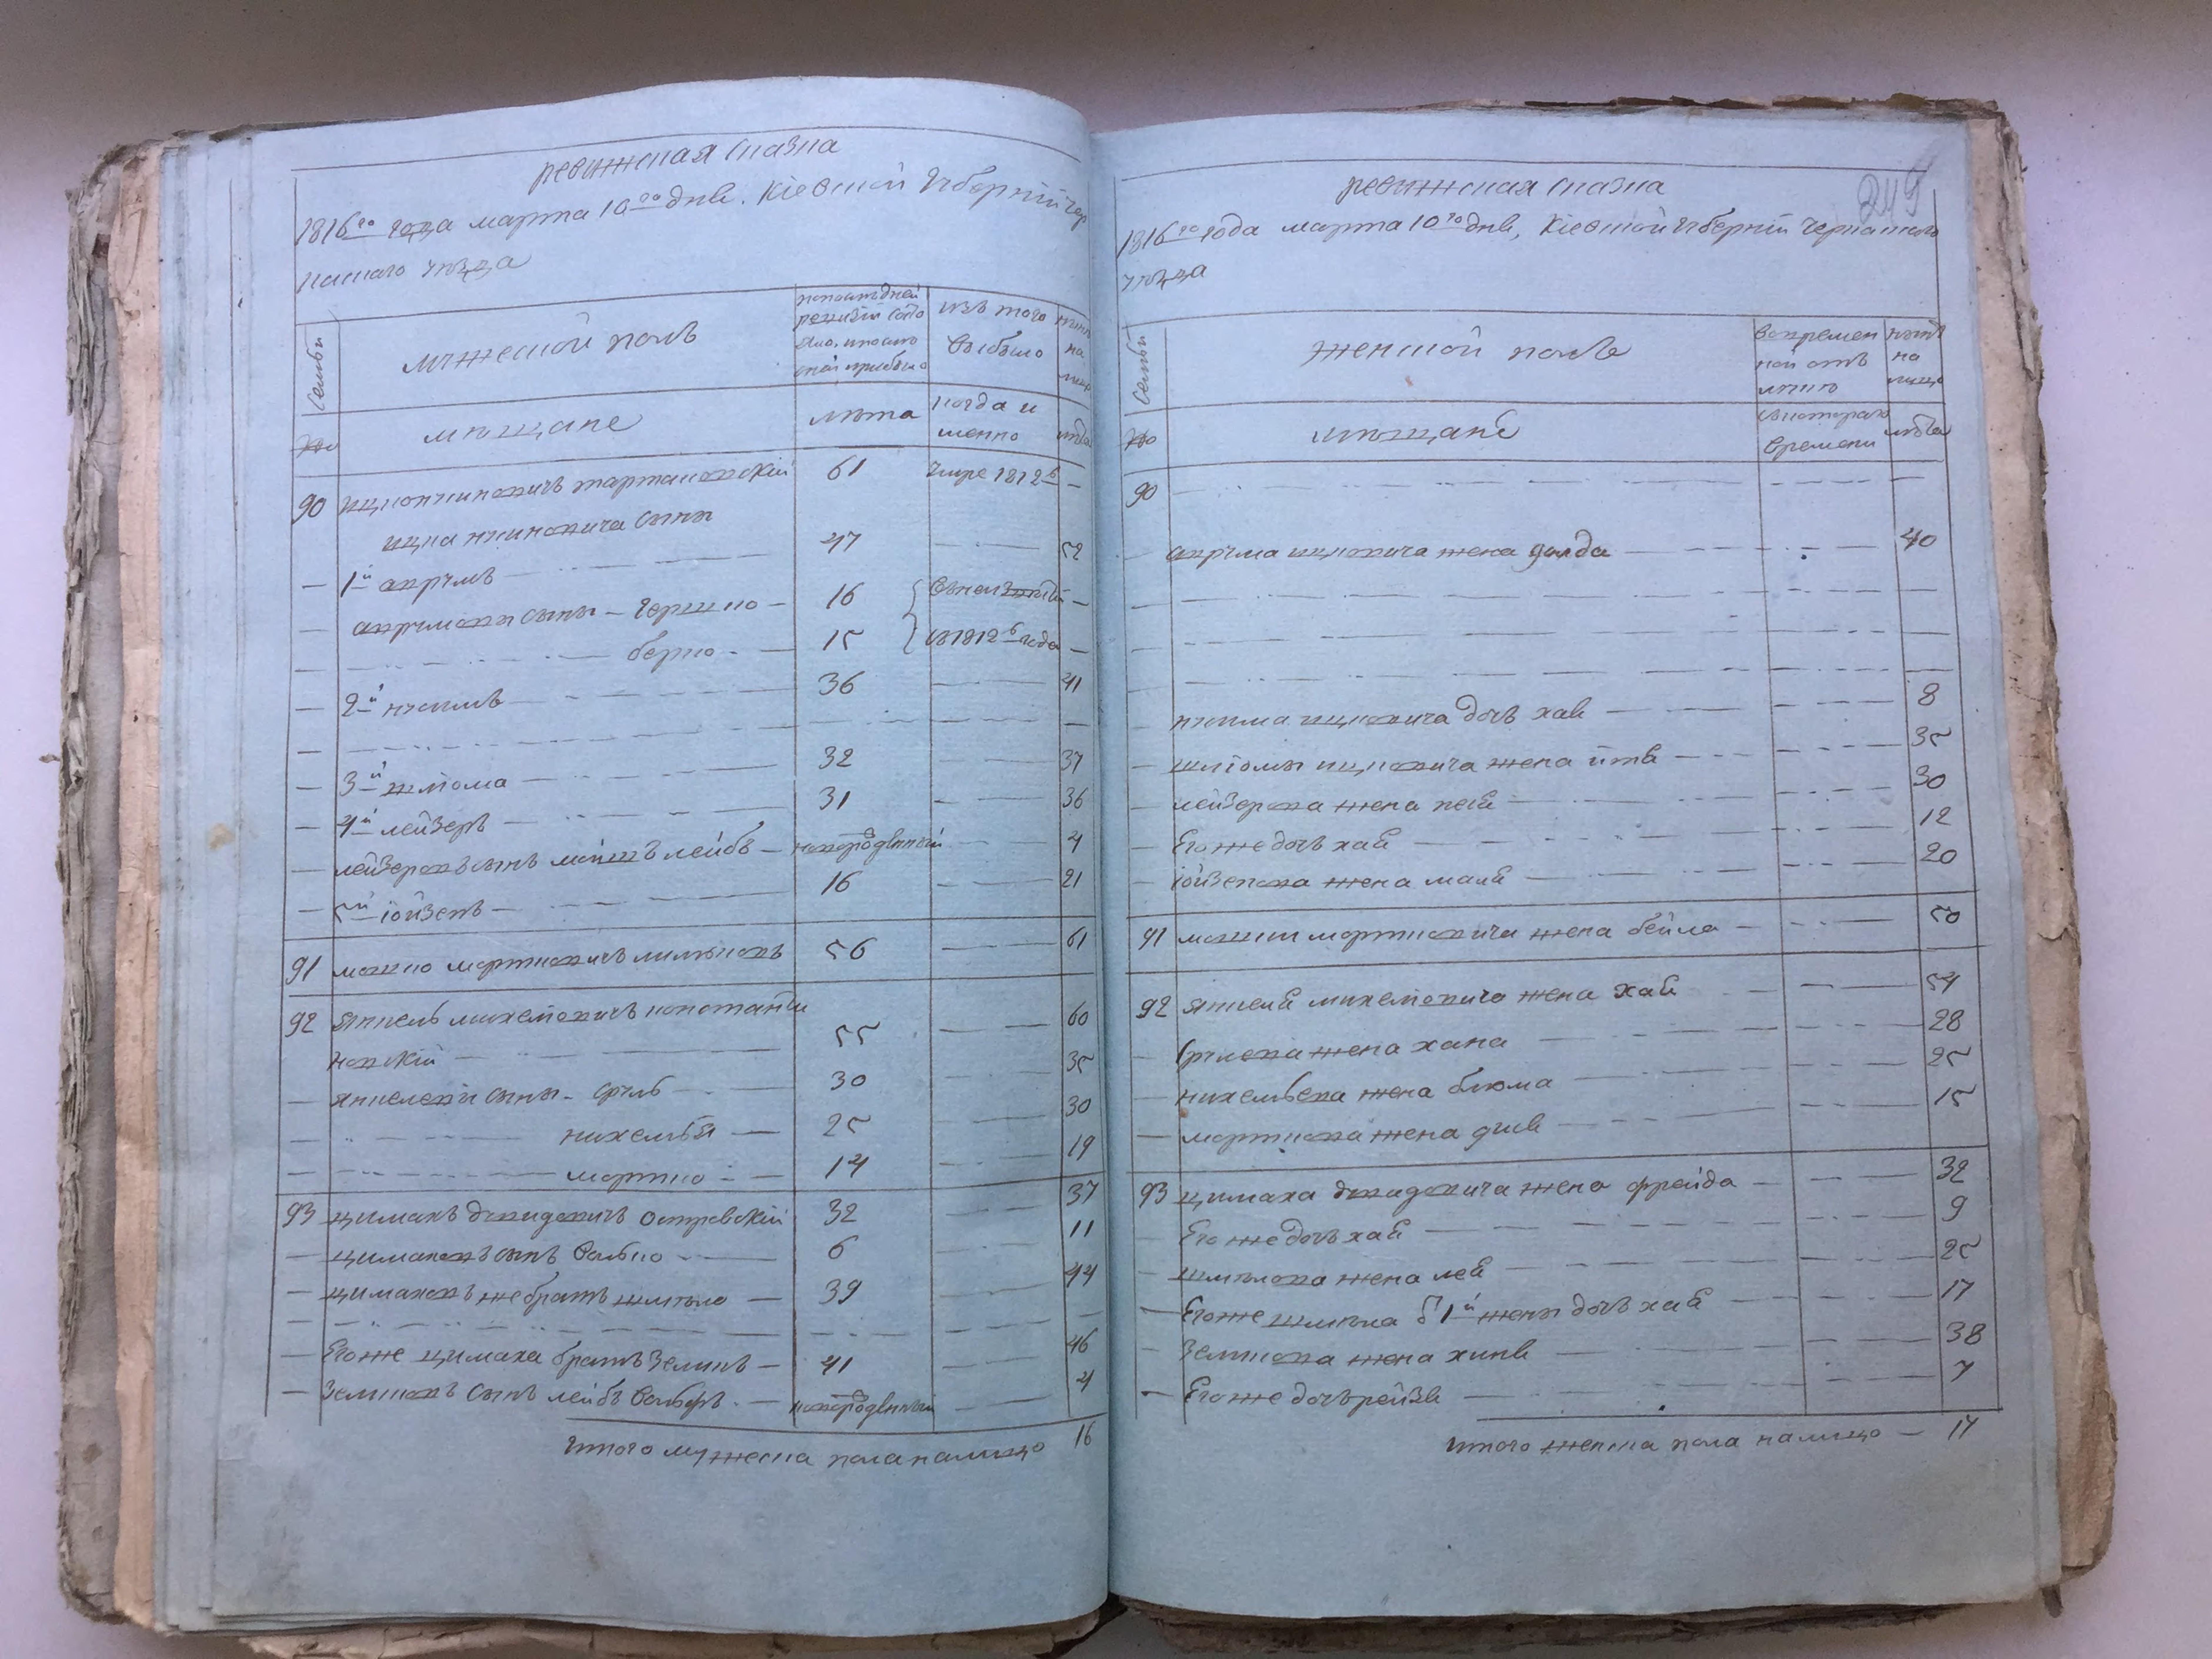 ревижская сказка
1816го года марта 10го днв. Кіевской губерніи чер
каскаго уѣзда
Семьи
мужеской полъ
попоследней ревизіи состо
яло, и после
оной прибыло
изъ того
выбыло
нынѣ
на
лицо
№
мѣщане
лѣта
когда и
менно
лѣта
90 ицко нухимовичъ тартаковскій 61 умре 1812в —
ицка нухимовича сыны
— 1й аврумъ 47 — 52
— аврумовы сыны – гершко – 16
берко – 15 в 1812в года —
— 2й нухимъ 36 — 41
— 3й шліома 32 — 37
— 4й лейзеръ 31 — 36
— лейзеровъ сынъ мойшъ лейбъ – новорожденный 4
— 5й іойзепъ 16 — 21
91 мошко мортковичъ 56 — 61
92 янкель михелiовичъ константи
новскій 55 — 60
— янкелевы сыны – сруль 30 — 35
нихемья — 25 — 30
мортко — 14 — 19
93 цимахъ давидовичъ островскій 32 — 37
— цимаховъ сынъ волько 6 — 11
— цимаховъ же братъ шмуло — 39 — 44
— Его же цимаха братъ зеликъ — 41 — 46
— зеликовъ сынъ лейбъ вольфъ — новорожденный — 4
итого мужеска пола налицо 16
ревижская сказка
249
1816го года марта 10го днв, Кіевской губерніи черкаскаго
уѣзда
Семьи
женской полъ
во времен
ной отъ
лучке
нынѣ
на
лицо
№
мѣщане
с котораго
времени
лѣта
90
— аврума ицковича жена голда — 40
— нухима ицковича дочъ хав — 8
— шліомы ицковича жена итв — 35
— лейзерова жена песв — 30
— Его же дочъ хав — 12
— іойзепова жена малв — 20
91 мошки мортковича жена бейла — 50
92 янкеля михелiовича жена хав — 54
— срулева жена хана — 28
— нихемьева жена блюма — 25
—морткова жена — 15
93 цимаха давидовича жена фрейда — 32
— Его же дочъ хав — 9
— шмулова жена лев — 25
— Его же шмула с 1й жены дочъ хав — 17
— Зеликова жена хинв — 38
— Его же дочъ рейзв — 7
итого женска пола налицо — 17